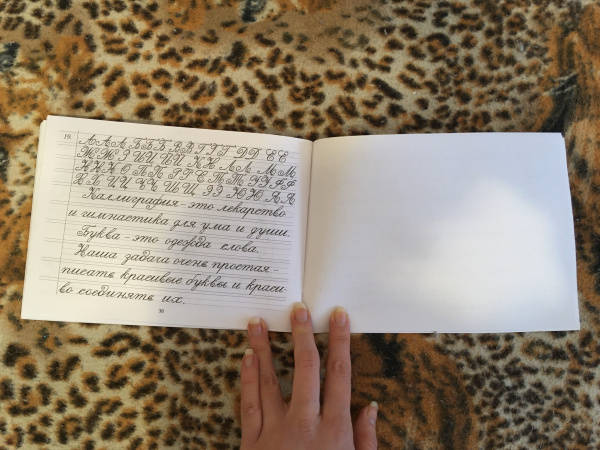 19.
А А А Б Б Б В В Г Г Г Д Д Е Е
Ж Ж З И И Й Й К К Л Л М М
Н Н Н О П П Р Р С Т Т У У Ф Ф
Х Х Ц Ц Ч Ч Ш Щ Э Э Ю Ю Я Я
Каллиграфия - это лекарство
и гимнастика для ума и души.
Буква - это одежда слова.
Наша задача очень простая -
писать красивые буквы и краси-
во соединять их.
30